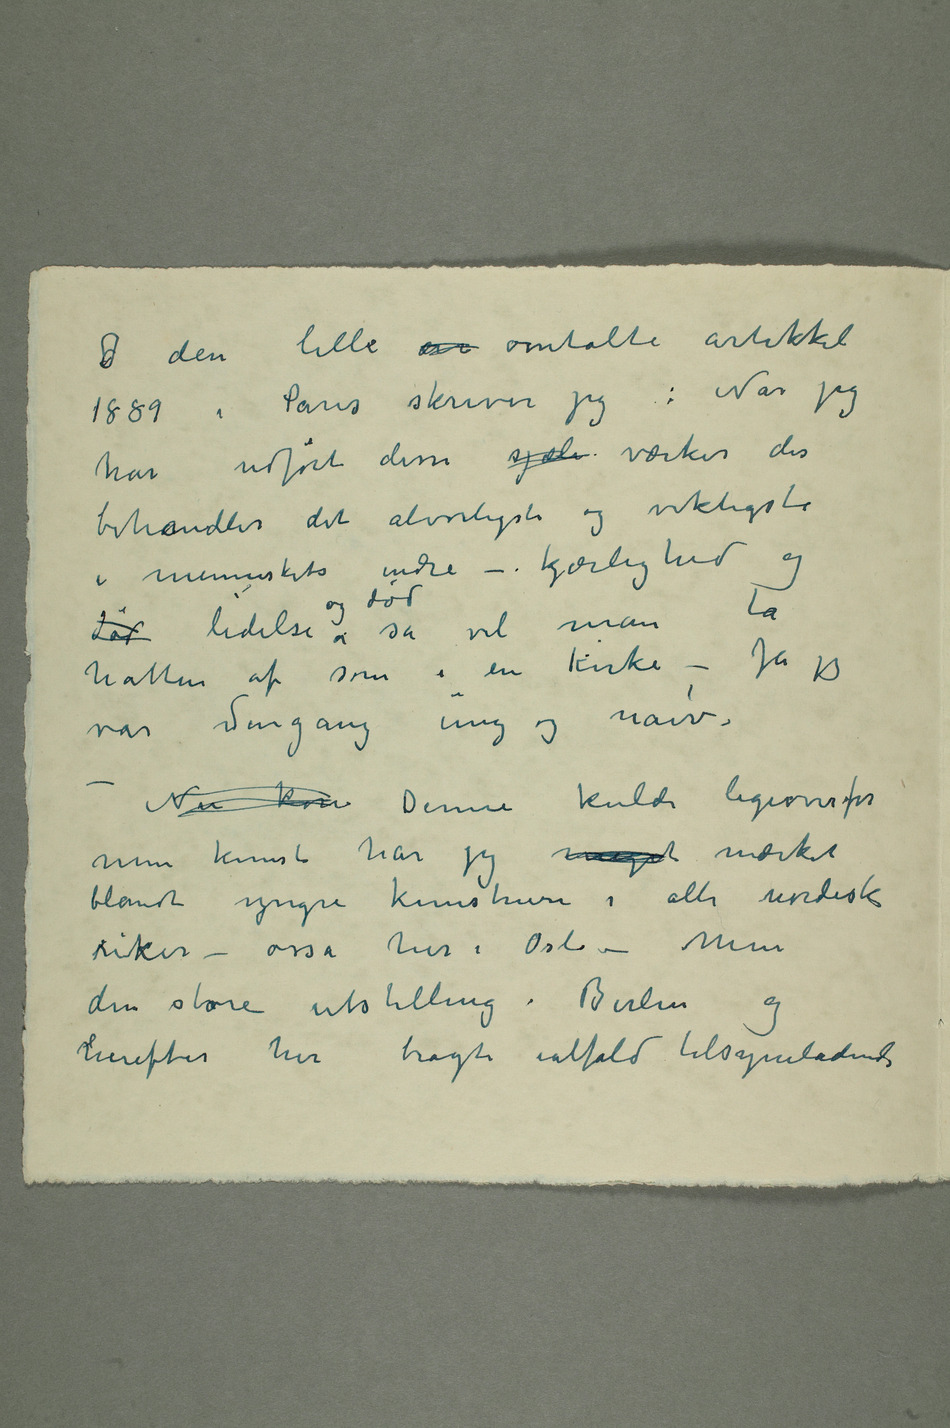 I den lille omtalte artikkel
1889 i Paris skriver jeg : Når jeg
har udført disse sjæle værker der
behandler det alvorligste og viktigste
i menneskets indre – kjærlighed og
død lidelse og død så vil man ta
hatten af som i en kirke – Ja jeg
var dengang ung og naiv.
– Nu kom Denne kulde ligeoverfor
min kunst har jeg meget mærket
blandt yngre kunstnere i alle nordiske
riker – osså her i Oslo – Men
den store utstilling i Berlin og
herefter her bragte ialfald tilsyneladende